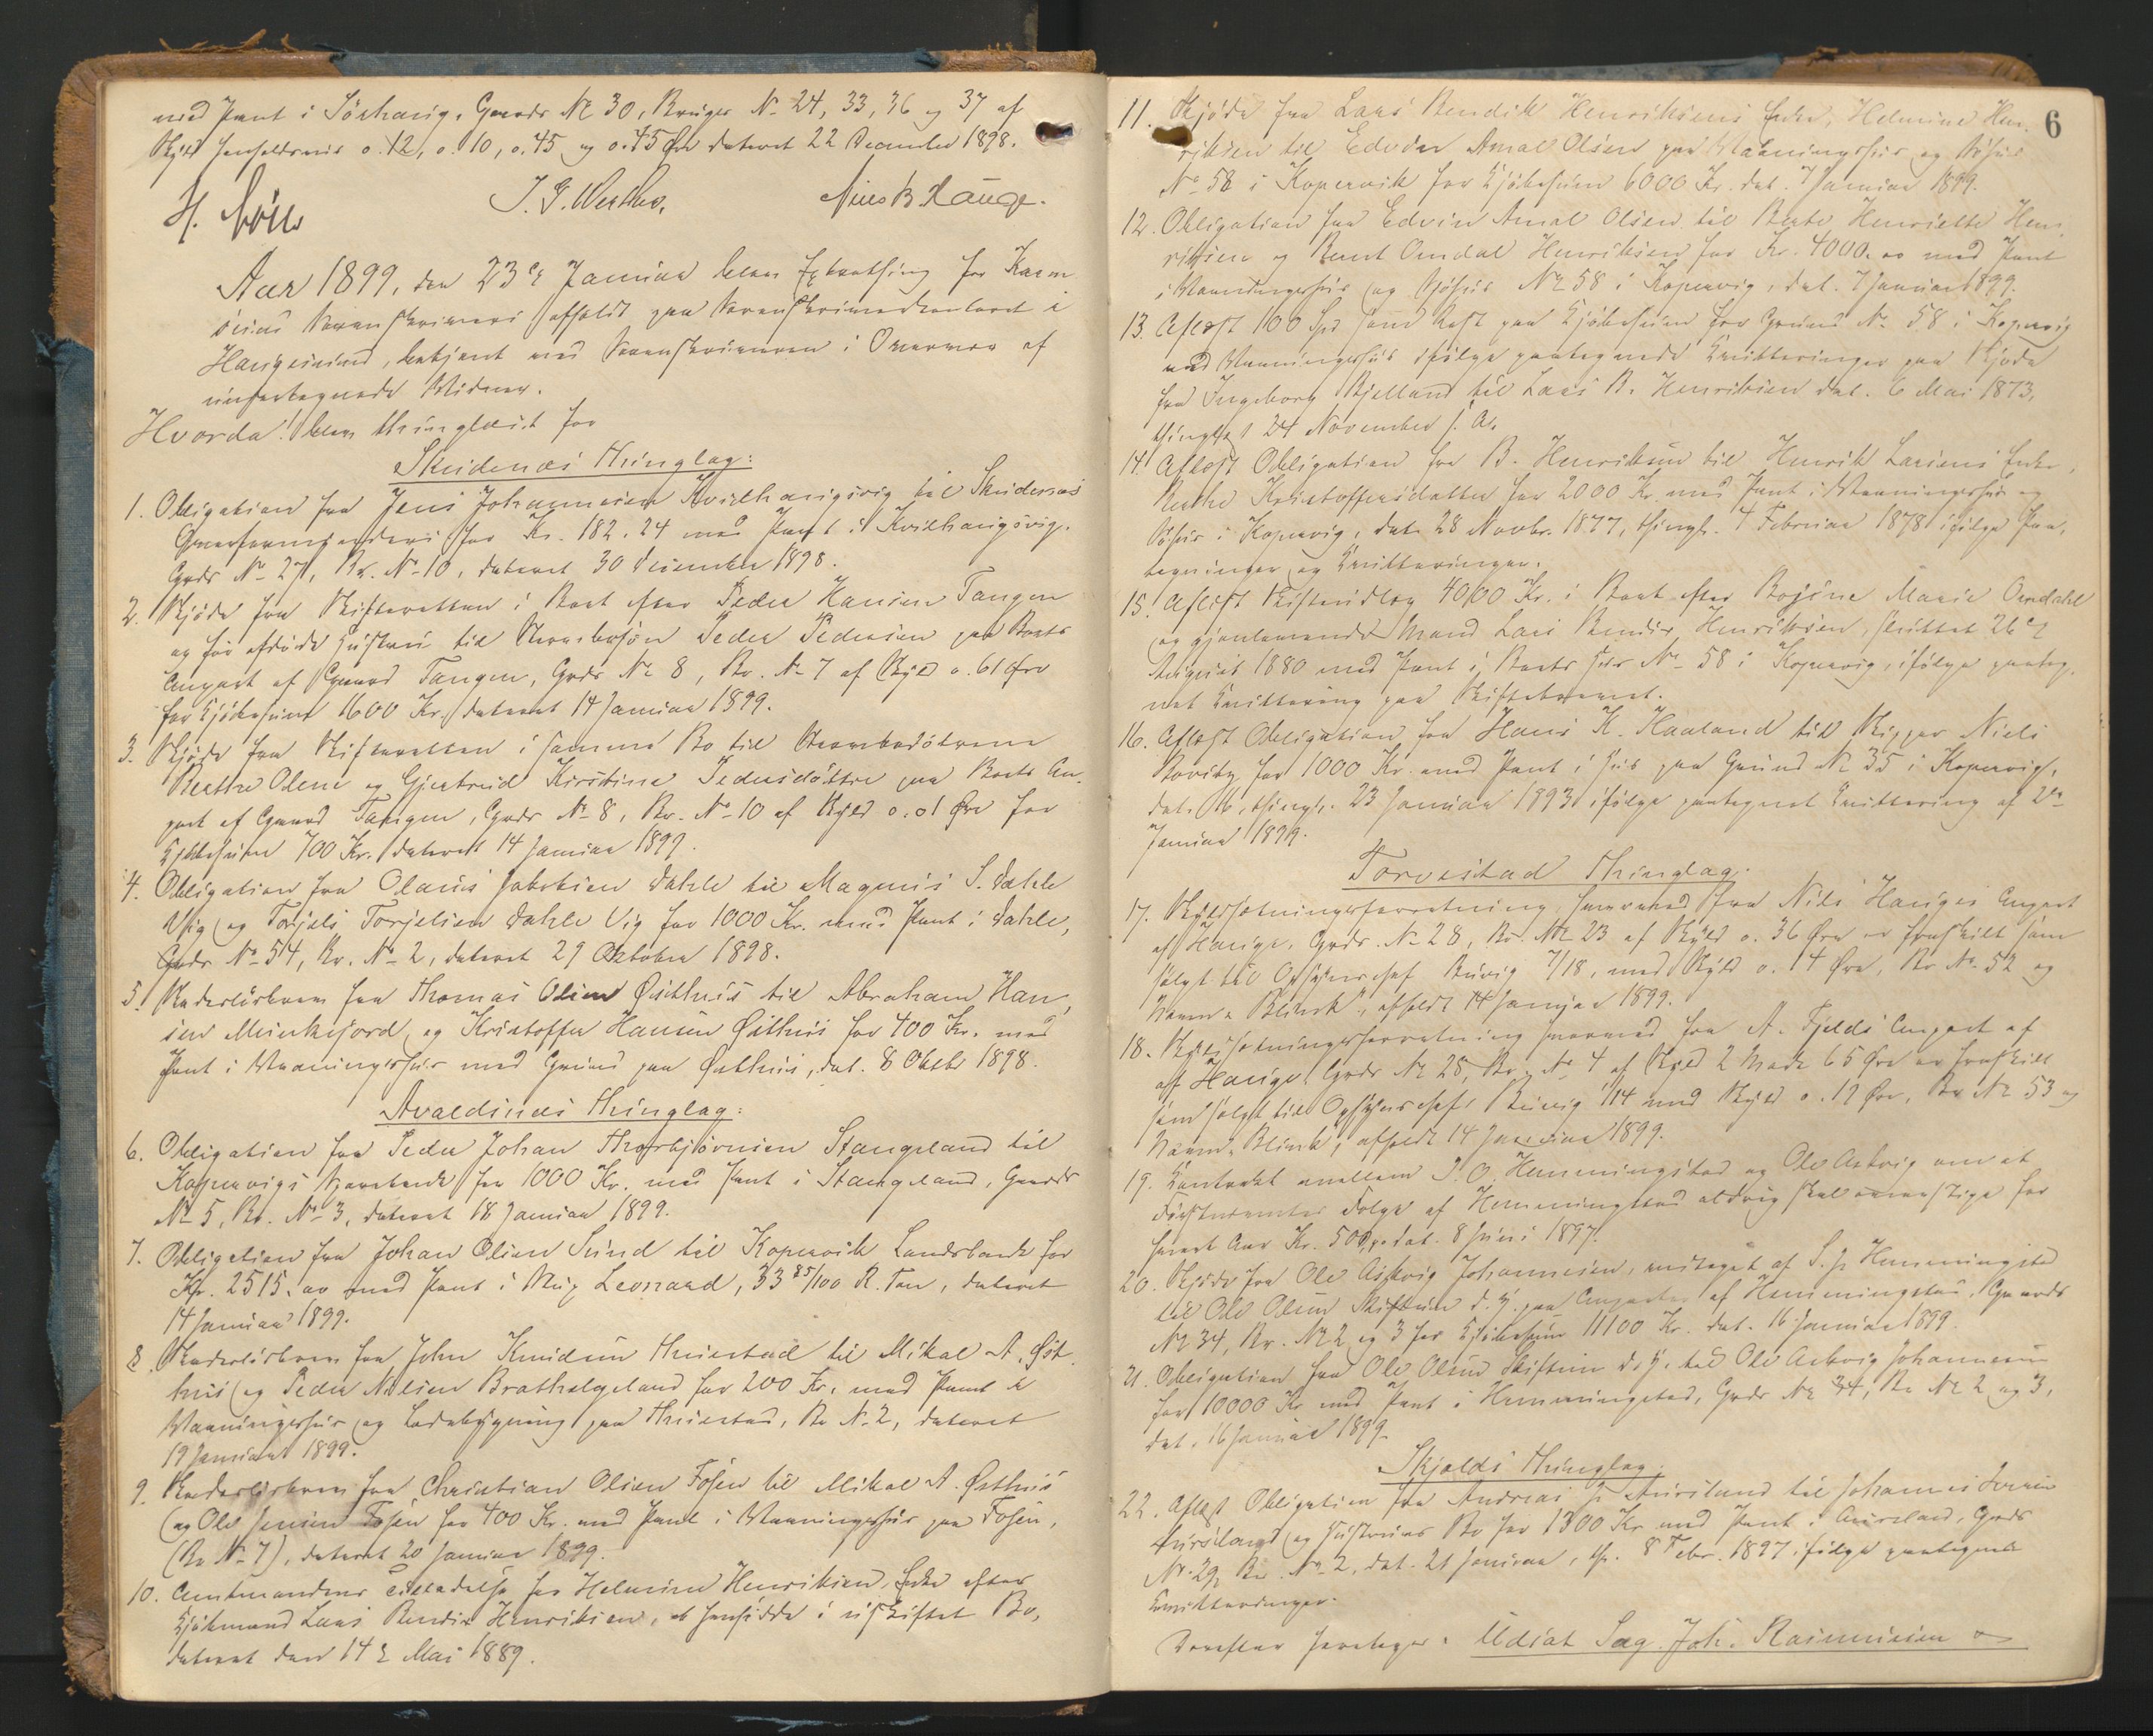 med Pant i Sørhaug, Gaards № 30, Bruges № 24, 33, 36 og 37 af
Skyld henholdsvis 0.12, 0.10, 0.45 og 0.45 Øre dateret 22 December 1898.
J. G. Nils B. Hauge.
Aar 1899, den 23de Januar blev Extrathing for Karm
sunds Sorenskriveri afholdt paa Sorenskriverkontoret i
Haugesund, betjent med Sorenskriveren i Overvær af
undertegnede Vidner.
Hvorda: blev thinglæst for
Skudenæs Thinglag:
1. Obligation fra Jens Johannesen Kvilhaugsvig til Skudenæs
Overformynderi for Kr. 182.24 med Pant i Kvilhaugsvig.
Grds № 27, Br. № 10, dateret 30 December 1898.
2. Skjøde fra Skifteretten i Boet efter Peder Hansen Tangen
og før afdøde Hustru til Stervbosøn Peder Pedersen paa Boets
Anpart af Gaard Tangen, Grds № 8, Br. № 7 af Skyld 0.61 Øre
for Kjøbesum 1600 Kr., dateret 14 Januar 1899.
3. Skjøde fra Skifteretten i samme Bo til Stervbodøtrene
Berthe Olene og Gjertrud Kirstine Pedersdøttre paa Boets An-
part af Gaard Tangen, Grds № 8, Br. № 10 af Skyld 0.01 Øre for
Kjøbesum 700 Kr. dateret 14 Januar 1899.
4. Obligation fra Olaus Jakobsen Dahle til Magnus S. Dahle
Vig og Torjels Torjelsen Dahle Vig for 1000 Kr. med Pant i Dahle,
Grds № 54, Br. № 2, dateret 29 Oktober 1898.
5. Skadesløsbrev fra Thomas Olsen Østhus til Abraham Han
sen Munkejord og Kristoffer Hansen Østhus for 400 Kr. med
Pant i Vaaningshus med Grund paa Østhus, dat. 8 Oktbr 1898.
Avaldsnæs Thinglag:
6. Obligation fra Peder Johan Thorbjørnsen Stangeland til
Kopervigs Sparebank for 1000 Kr. med Pant i Stangeland, Gaards
№ 5, Br. № 3, dateret 18 Januar 1899.
7. Obligation fra Johan Olsen Sund til Kopervik Landsbank for
Kr. 2515.00 med Pant i Leonard, 33 85/100 R. Ton, dateret
14 Januar 1899.
8. Skadesløsbrev fra John Knudsen Thuestad til Mikal A. Øst
hus og Peder Nilsen Brathelgeland for 200 Kr. med Pant i
Vaaningshus og Ladebygning paa Thuestad, Br № 2, dateret
19 Januar 1899.
9. Skadesløsbrev fra Christian Olsen Fosen til Mikal A. Østhus
og Ole Jensen Fosen for 400 Kr. med Pant i Vaaningshus paa Fosen,
(Br № 7), dateret 20 Januar 1899.
10. Amtmandens Tilladelse for Helmine Henriksen, Enke efter
Kjøbmand Lars Bendix Henriksen, at hensidde i uskiftet Bo,
dateret den 14de Mai 1889.
6
11. Skjøde fra Lars Bendik Henriksens Enke, Helmine Hen-
riksen til Edvin Amal Olsen paa Vaaningshus og Søhus
№ 58 i Kopervik for Kjøbesum 6000 Kr. dat. 7 Januar 1899.
12. Obligation fra Edvin Amal Olsen til Berte Henriette Hen-
riksen og Bernt Omdal Henriksen for Kr. 4000.00 med Pant
i Vaaningshus og Søhus № 58 i Kopervig, dat. 7 Januar 1899.
13. Aflæst 100 Spd som Rest paa Kjøbesum for Grund № 58 i Kopervig
med Vaaningshus ifølge paategnede Kvitteringer paa Skjøde
fra Ingeborg Bjelland til Lars B. Henriksen dat. 6 Mai 1873,
thinglæst 24 November s. A.
14. Aflæst Obligation fra B. Henriksen til Henrik Larsens Enke,
Berthe Kristoffersdatter for 2000 Kr. med Pant i Vaaningshus og
Søhus i Kopervig, dat. 28 Novbr. 1877, thingl. 4 Februar 1878 ifølge Paa-
tegninger og Kvitteringer.
15. Aflæst Skifteudlæg 4000 Kr. i Boet efter Bojine Marie Omdahl
og gjenlevende Mand Lars Bendix Henriksen, sluttet 26de
August 1880 med Pant i Boets Hus № 58 i Kopervig, ifølge paateg-
net Kvittering paa Skiftebrevet.
16. Aflæst Obligation fra Hans K. Haaland til Skipper Niels
for 1000 Kr. med Pant i Hus paa Grund № 35 i Kopervig,
dat. 16, thingl. 23 Januar 1893 ifølge paategnet Kvittering af 2de
Januar 1899.
Torvestad Thinglag:
17. Skyldsætningsforretning, hvorved fra Nils Hauges Anpart
af Hauge, Grds. № 28, Br. № 23 af Skyld 0.36 Øre er fraskilt som
solgt til Opsynschef 7/18, med Skyld 0.14 Øre, Br № 52 og
Navn "Blink", afholdt 14 Januar 1899.
18. Skyldsætningsforretning hvorved fra A. Fjelds Anpart af
af Hauge, Grds № 28, Br № 4 af Skyld 2 Mark 65 Øre er fraskilt
som solgt til Opsynschef 1/14 med Skyld 0.19 Øre, Br № 53 og
Navn "Blink", afholdt 14 Januar 1899.
19. Kontrakt mellem J. O. Hemmingstad og Ole Askvig om at
Føderaadets Følge af Hemmingstad aldrig skal overstige for
hvert Aar Kr. 500, dat. 8 Juni 1897.
20. Skjøde fra Ole Askvig Johannesen, medtaget af S. J. Hemmingstad
til Ole Olsen d. y. paa Anparter af Hemmingstad, Gaards
№ 34, Br. № 2 og 3 for Kjøbesum 11100 Kr. dat. 16 Januar 1899.
21. Obligation fra Ole Olsen d. y. til Ole Askvig Johannesen
for 10000 Kr med Pant i Hemmingstad, Grds № 34, Br № 2 og 3,
dat. 16 Januar 1899.
Skjolds Thinglag:
22. Aflæst Obligation fra Andreas J. Aursland til Johannes
Aursland og Hustrues Bo for 1300 Kr med Pant i Aursland, Grds
№ 29, Br. № 2, dat. 21 Januar, th. 8 Febr. 1897 ifølge paategnede
Kvitteringer.
Derefter foretages: Udsat Sag. Joh. Rasmussen